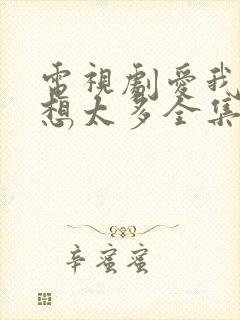 電視劇愛我
想太多全集
辛蜜蜜